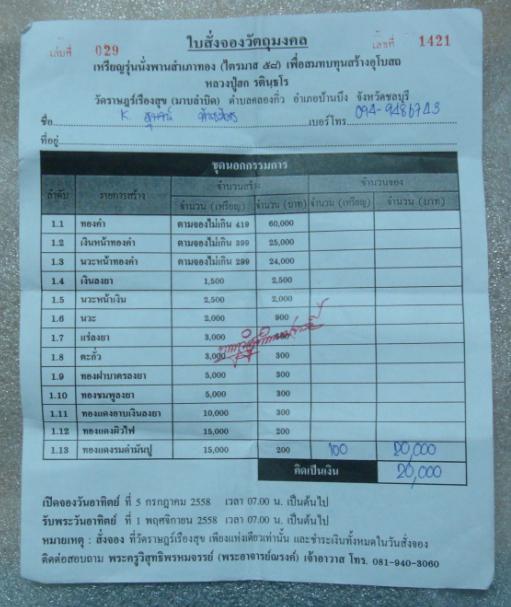 ใบสั่งจองวัตถุมงคล
เล่มที่ 029 เลขที่ 1421
เหรียญรุ่นนั่งพานสำเภาทอง (ไตรมาส ๕๘) เพื่อสมทบทุนสร้างอุโบสถ
หลวงปู่ฮก รตินฺธโร
วัดราษฎร์เรืองสุข (มาบลำบิด) ตำบลคลองกิ่ว อำเภอบ้านบึง จังหวัดชลบุรี
ชื่อ K. เบอร์โทร 094-9486743
ที่อยู่
ชุดนอกกรรมการ
ลำดับ รายการสร้าง จำนวนสร้าง จำนวนจอง
จำนวน (เหรียญ) จำนวน (บาท) จำนวน (เหรียญ) จำนวน (บาท)
1.1 ทองคำ ตามจองไม่เกิน 419 60,000
1.2 เงินหน้าทองคำ ตามจองไม่เกิน 399 25,000
1.3 นวะหน้าทองคำ ตามจองไม่เกิน 299 24,000
1.4 เงินลงยา 1,500 2,500
1.5 นวะหน้าเงิน 2,500 2,000
1.6 นวะ 2,000 900
1.7 แร่ลงยา 3,000
1.8 ตะกั่ว 3,000 300
1.9 ทองฝาบาตรลงยา 5,000 300
1.10 ทองชมพูลงยา 5,000 300
1.11 ทองแดงอาบเงินลงยา 10,000 300
1.12 ทองแดงผิวไฟ 15,000 200
1.13 ทองแดงรมดำมันปู 15,000 200 100 20,000
คิดเป็นเงิน 20,000
เปิดจองวันอาทิตย์ ที่ 5 กรกฎาคม 2558 เวลา 07.00 น. เป็นต้นไป
รับพระวันอาทิตย์ ที่ 1 พฤศจิกายน 2558 เวลา 07.00 น. เป็นต้นไป
หมายเหตุ : สั่งจอง ที่วัดราษฎร์เรืองสุข เพียงแห่งเดียวเท่านั้น และชำระเงินทั้งหมดในวันสั่งจอง
ติดต่อสอบถาม พระครูวิสุทธิพรหมจรรย์ (พระอาจารย์ณรงค์) เจ้าอาวาส โทร. 081-940-3060